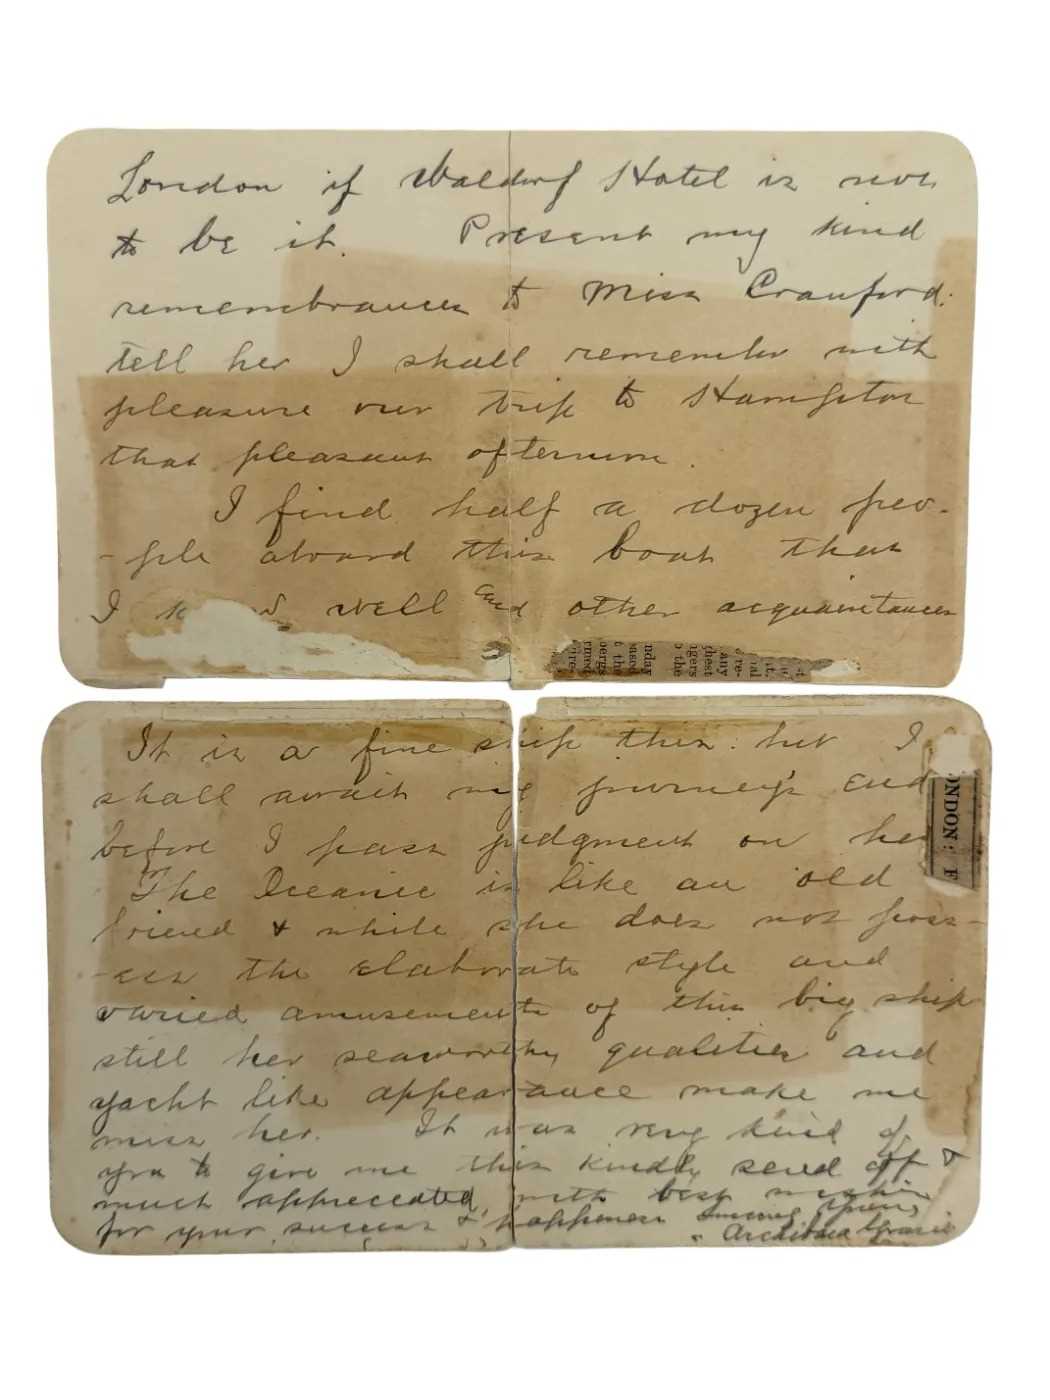 London if Waldorf Hotel is not
to be it. Present my kind
remembrances to Miss Cranford.
tell her I shall remember with
pleasure our trip to Hampton
that pleasant afternoon.
I find half a dozen peo-
-ple aboard this boat that
I well and other acquaintances
nday
t the
It is a fine ship this: but I
shall await my journey's end
before I pass judgment on her
The Oceanic is like an old
friend & while she does not poss-
-ess the elaborate style and
varied amusements of this big ship
still her seaworthy qualities and
yacht like appearance make me
miss her. It was very kind of
you to give me this kindly send off &
much appreciated, with best wishes
for your success & happiness yours,
Archibald Gracie
ONDON: E